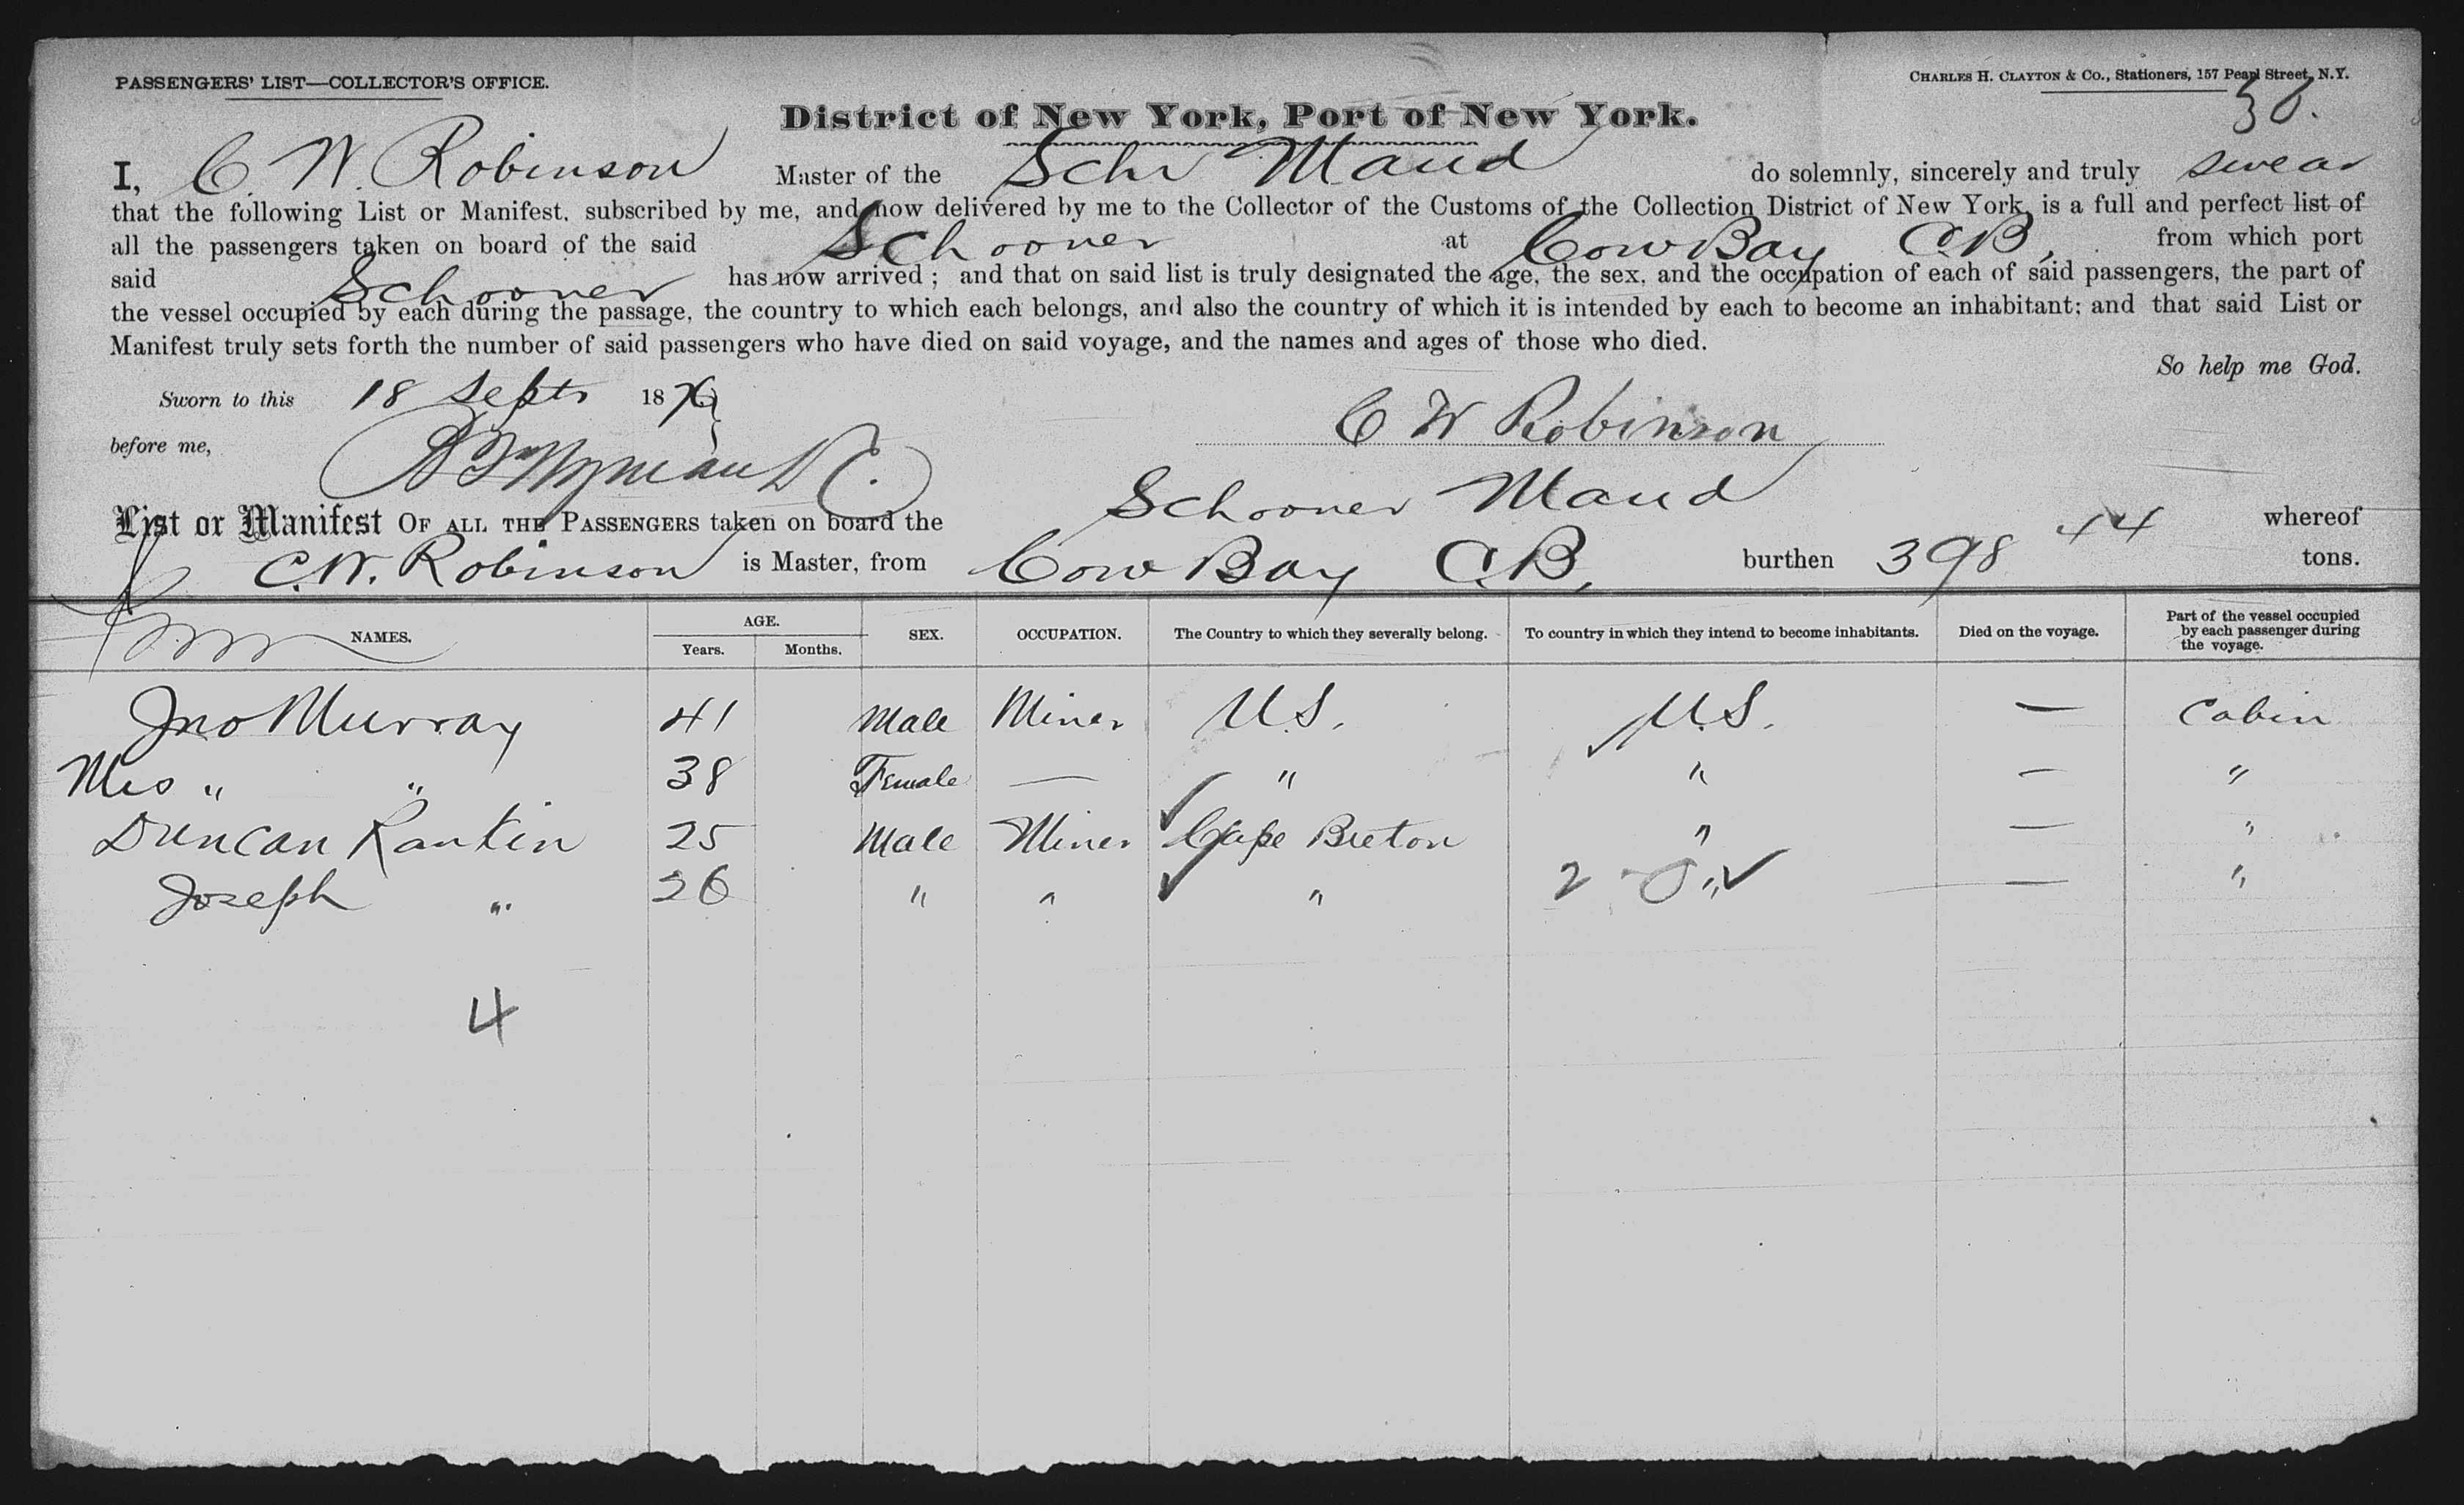 PASSENGERS' LIST—COLLECTOR'S OFFICE.
CHARLES H. CLAYTON & CO., Stationers, 157 Pearl Street, N.Y.
30.
District of New York, Port of New York.
I, C. W. Robinson Master of the Schr Maud do solemnly, sincerely and truly swear
that the following List or Manifest, subscribed by me, and now delivered by me to the Collector of the Customs of the Collection District of New York, is a full and perfect list of
all the passengers taken on board of the said Schooner at Cow Bay C.B, from which port
said Schooner has now arrived; and that on said list is truly designated the age, the sex, and the occupation of each of said passengers, the part of
the vessel occupied by each during the passage, the country to which each belongs, and also the country of which it is intended by each to become an inhabitant; and that said List or
Manifest truly sets forth the number of said passengers who have died on said voyage, and the names and ages of those who died.
So help me God.
Sworn to this 18 Septr 1876
C W Robinson
before me,
List or Manifest OF ALL THE PASSENGERS taken on board the Schooner Maud whereof
C.W. Robinson is Master, from Cow Bay C.B, burthen 398 44 tons.
NAMES. AGE. Years. Months. SEX. OCCUPATION. The Country to which they severally belong. To country in which they intend to become inhabitants. Died on the voyage. Part of the vessel occupied by each passenger during the voyage.
Jno Murray 41 Male Miner U.S. ✓ U.S. — Cabin
Mrs " " 38 Female — " " — "
Duncan Rankin 25 Male Miner ✓ Cape Breton " — "
Joseph " 26 " " ✓ " 2 " ✓ — "
4